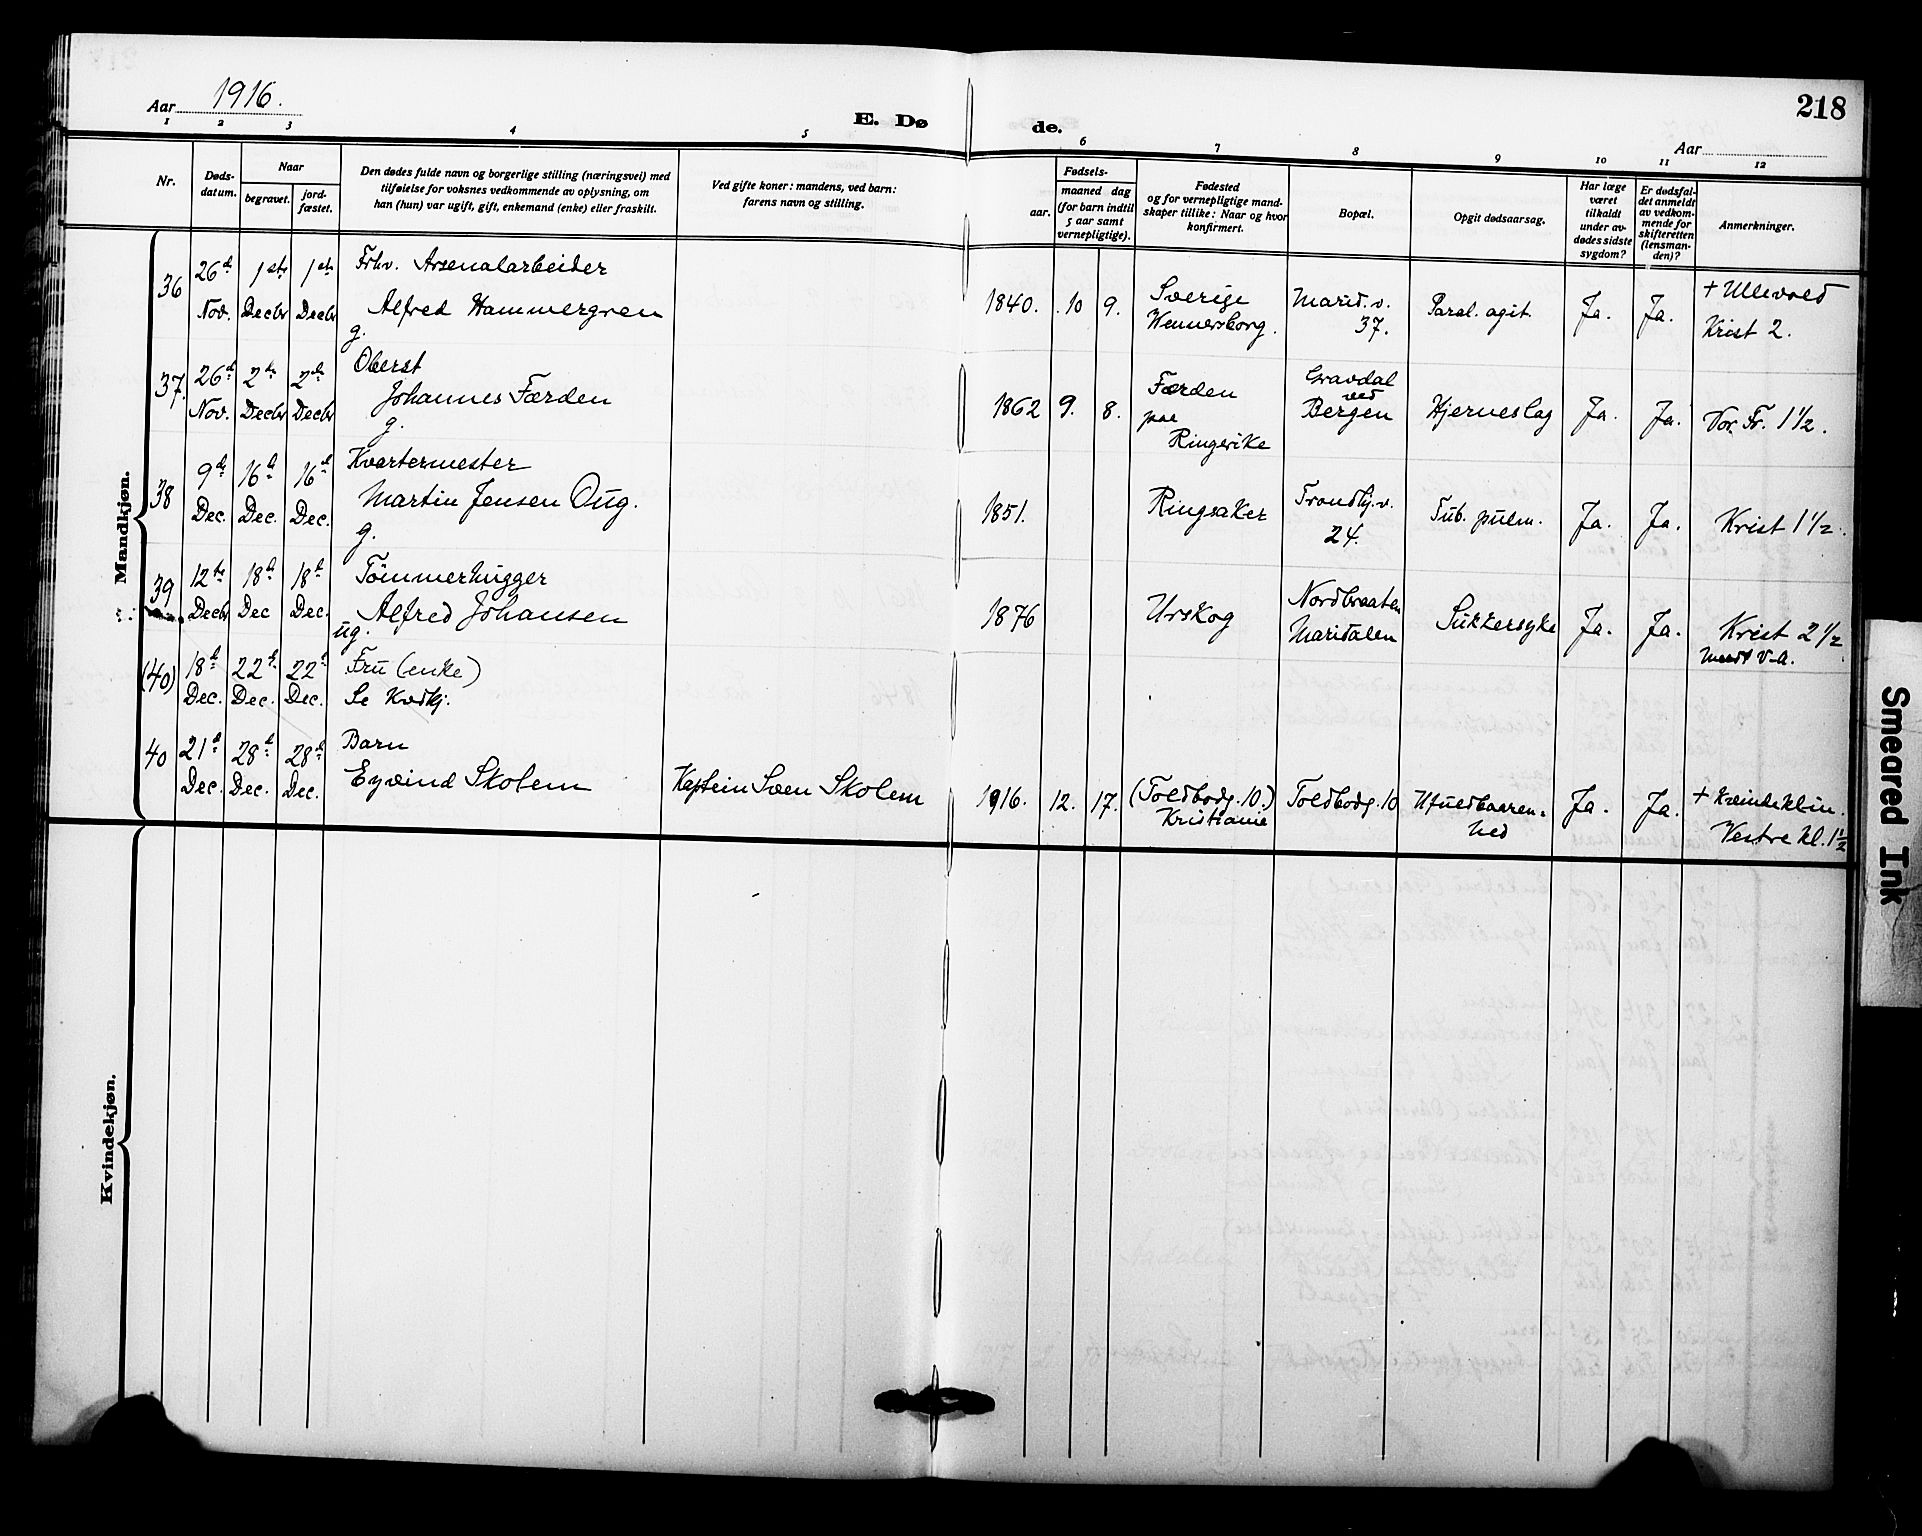 Aar 1916.
E. Døde.
218
Aar
1 2 3 4 5 6 7 8 9 10 11 12
Nr.
Døds-
datum.
Naar
begravet.
jord-
fæstet.
Den dødes fulde navn og borgerlige stilling (næringsvei) med
tilføielse for voksnes vedkommende av oplysning, om
han (hun) var ugift, gift, enkemand (enke) eller fraskilt.
Ved gifte koner: mandens, ved barn:
farens navn og stilling.
Fødsels-
aar.
maaned dag
(for barn indtil
5 aar samt
vernepligtige).
Fødested
og for vernepligtige mand-
skaper tillike: Naar og hvor
konfirmert.
Bopæl.
Opgit dødsaarsag.
Har læge
været
tilkaldt
under av-
dødes sidste
sygdom?
Er dødsfal-
det anmeldt
av vedkom-
mende for
skifteretten
(lensman-
den)?
Anmerkninger.
Mandkjøn.
36 26d Nov. 1ste Decbr 1ste Decbr
Frhv. Arsenalarbeider
Alfred Hammergren
g.
1840. 10 9.
Sverige
Wennersborg.
Marid.v.
37.
Paral. agit.
Ja. Ja.
+ Ullevold
Krist 2.
37. 26d Nov. 2de Decbr 2de Decbr
Oberst
Johannes Færden
g.
1862 9. 8.
Færden
paa
Ringerike
Gravdal
ved
Bergen
Hjerneslag
Ja. Ja.
Vor Fr. 1 1/2.
38 9de Dec. 16d Dec. 16d Dec.
Kvartermester
Martin Jensen Oug.
g.
1851.
Ringsaker
Trondhj.v.
24.
Tub. pulm.
Ja. Ja.
Krist 1 1/2.
39 12te Decbr 18d Dec 18d Dec.
Tömmerhugger
Alfred Johansen
ug.
1876
Urskog
Nordbraaten
Maridalen
Sukkersyke
Ja. Ja.
Krist 2 1/2
(40) 18d Dec. 22d Dec. 22d Dec.
Fru (enke)
Se Kvdkj.
40 21d Dec. 28d Dec. 28d Dec.
Barn
Eyvind Skolem
Kaptein Sven Skolem
1916. 12. 17.
(Toldbodg. 10.)
Kristiania
Toldbodg. 10
Ufuldbaaren-
hed
Ja. Ja.
+ Kvindeklin.
Vestre kl. 1 1/2
Kvindekjøn.
Smeared Ink